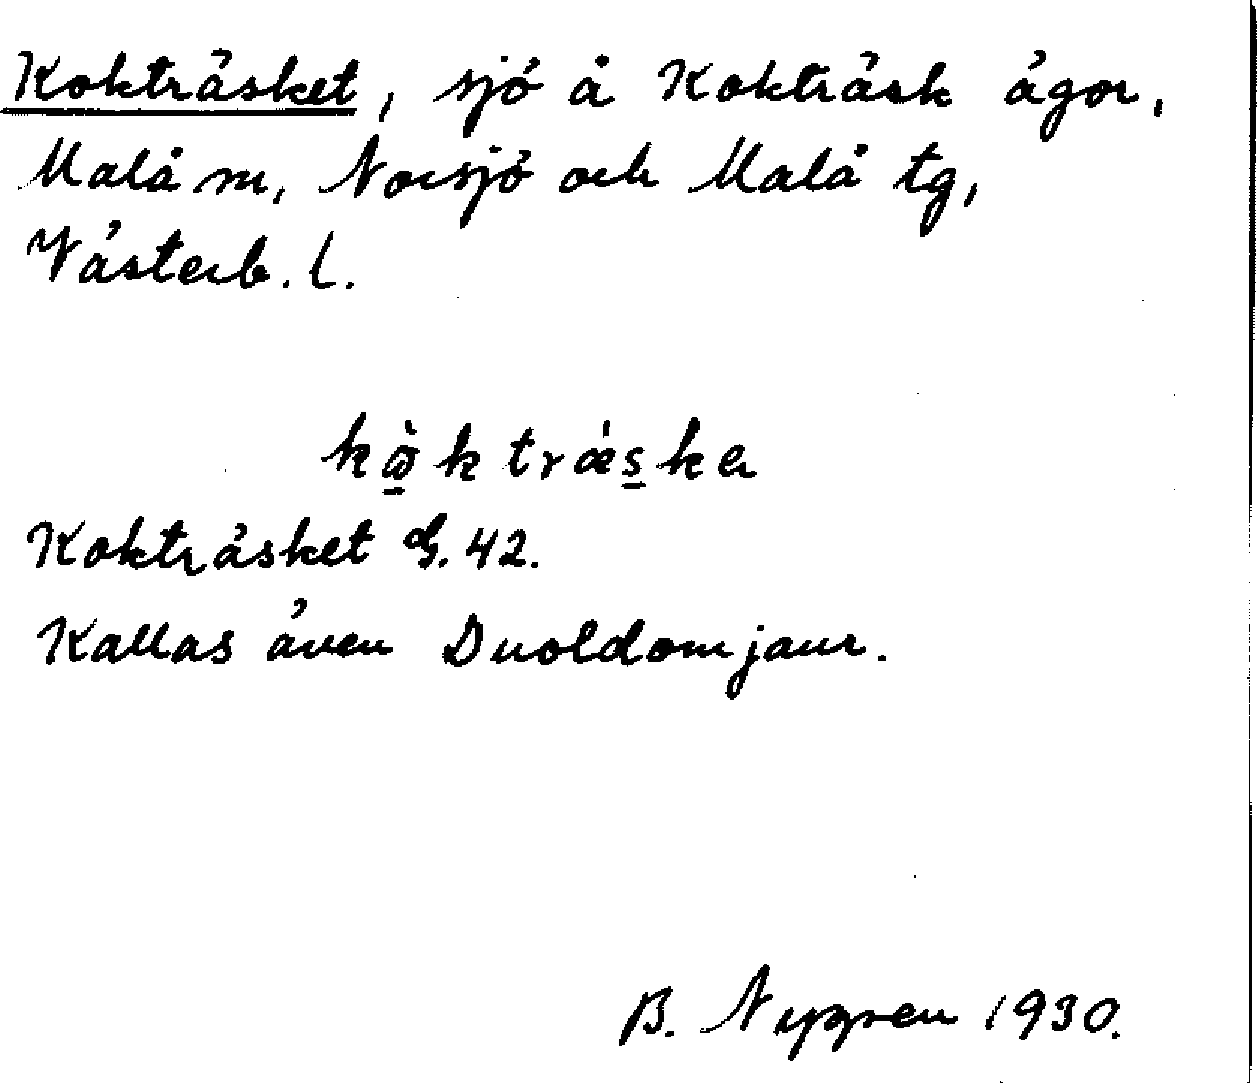 Kokträsket, sjö å Kokträsk ägor,
Malå sn, Norsjö och Malå tg,
Västerb. l.
Kokträsket G. 42.
Kallas även Duoldomjaur.
B. Nygren 1930.